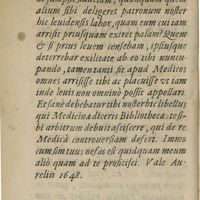 alium sibi deligeret patronum noster
hic leuidensis labor, quam eum cui iam
arrisit priusquam exiret palam? Quem
& si prius leuem censebam, ipsiusque
deterrebar exilitate ab eo tibi nuncu-
pando, tamen tanti sit apud Medicos
omnes arrisisse tibi ac placuisse vt iam
inde leuis non omnino possit appellari.
Et sane debebatur tibi noster hic libellus,
qui Medicinæ diceris Bibliotheca: te si-
bi arbitrum debuit asciscere, qui de re
Medica controuersiam defert. Immo
cum sim tuus nefas est quidquam meum
alio quam ad te proficisci. Vale Au-
reliis 1648.